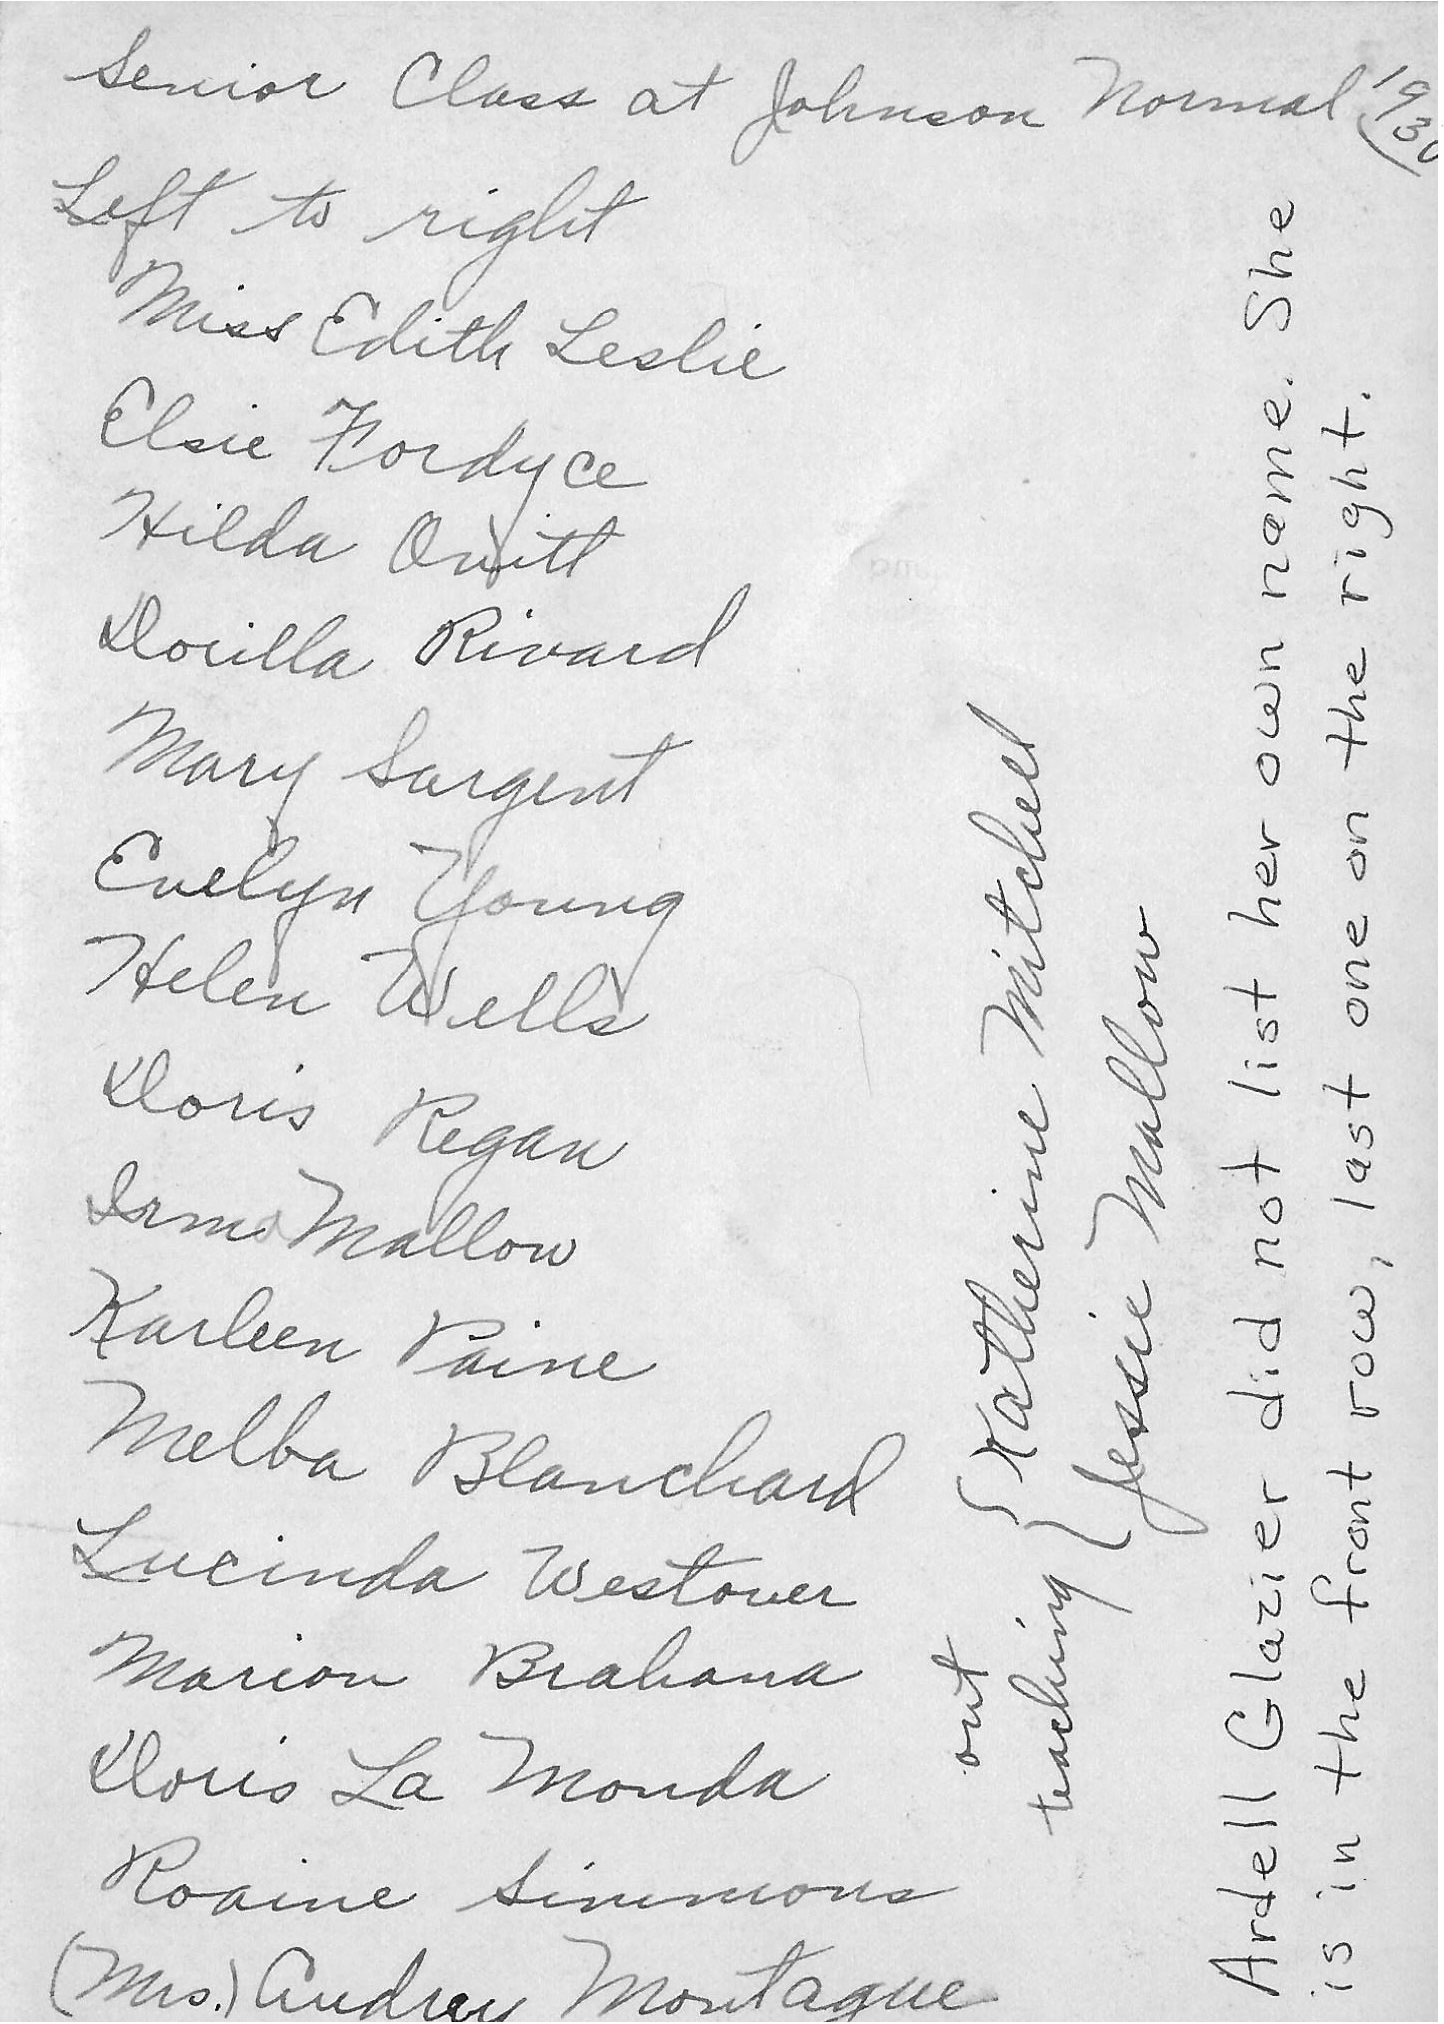 Senior Class at Johnson Normal
Left to right
Miss Edith Leslie
Elsie Fordyce
Hilda Ovitt
Dorilla Rivard
Mary Sargent
Evelyn Young
Helen Wells
Doris Regan
Irma Mallow
Karleen Paine
Melba Blanchard
Lucinda Westover
Marion Brahana
Doris La Monda
Roaine Simmons
(Mrs.) Audrey Montague
out
teaching
{ Katherine Mitchell
{ Jessie Mallow
Ardell Glazier did not list her own name. She
is in the front row, last one on the right.